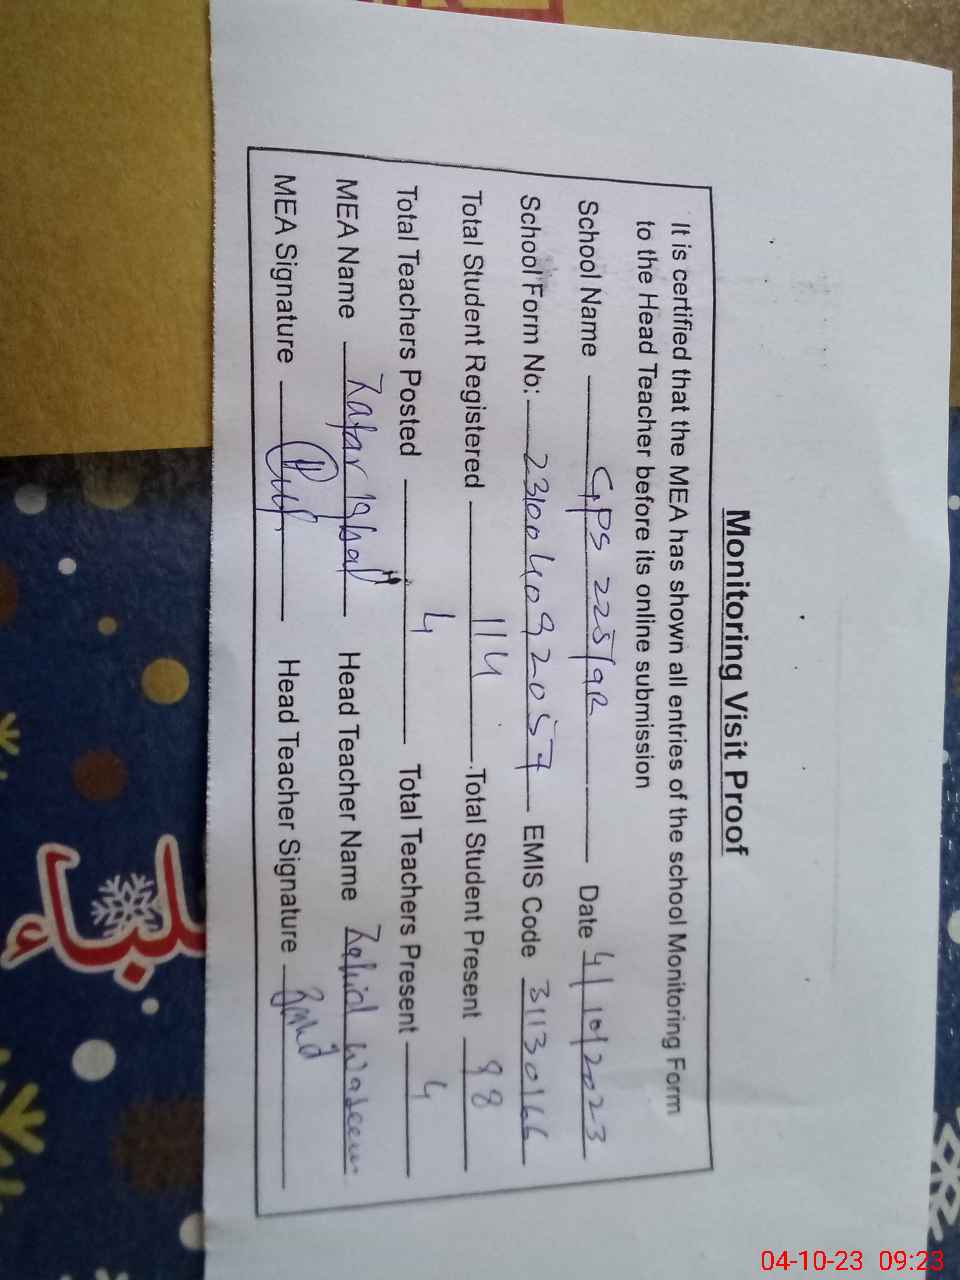 Monitoring Visit Proof
It is certified that the MEA has shown all entries of the school Monitoring Form
to the Head Teacher before its online submission
School Name GPS 225/9R Date 4/10/2023
School Form No: 23004092057 EMIS Code 31130166
Total Student Registered 114 Total Student Present 98
Total Teachers Posted 4 Total Teachers Present 4
MEA Name Zafar Iqbal Head Teacher Name Zahid Waseem
MEA Signature Head Teacher Signature Zahid
طلباء
04-10-23 09:23